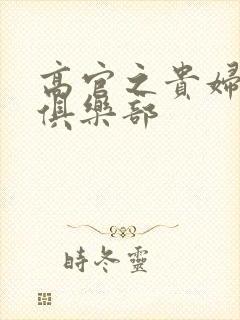 高官之貴婦
俱樂部
時冬靈